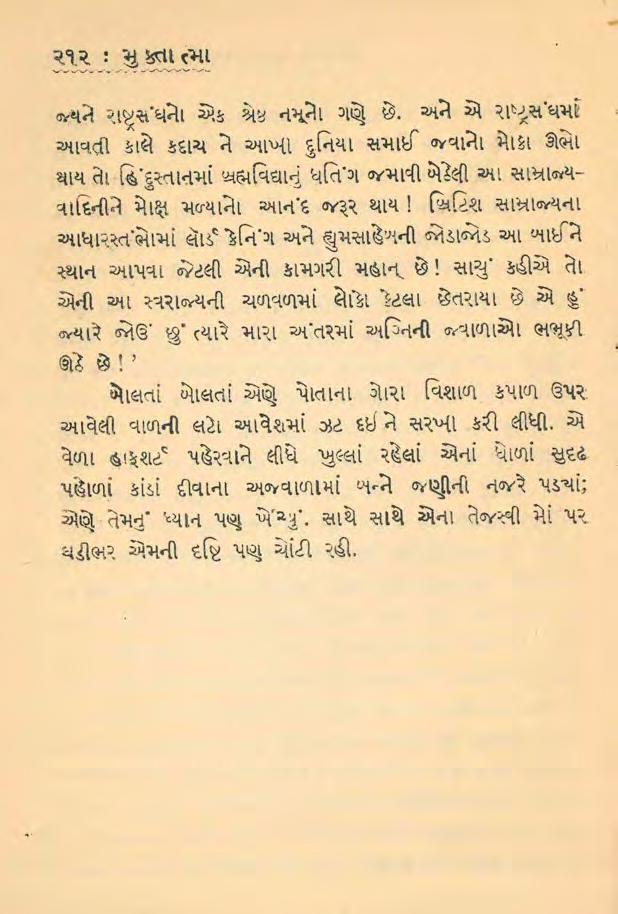 ૨૧૨ : મુક્તાત્મા
જ્યને રાષ્ટ્રસંઘનો એક શ્રેષ્ઠ નમૂનો ગણે છે. અને એ રાષ્ટ્રસંઘમાં
આવતી કાલે કદાચ ને આખી દુનિયા સમાઈ જવાનો મોકો ઊભો
થાય તો હિંદુસ્તાનમાં બ્રહ્મવિદ્યાનું ધતિંગ જમાવી બેઠેલી આ સામ્રાજ્ય–
વાદિનીને મોક્ષ મળ્યાનો આનંદ જરૂર થાય! બ્રિટિશ સામ્રાજ્યના
આધારસ્તંભોમાં લૉર્ડ કેનિંગ અને હ્યુમસાહેબની જોડાજોડ આ બાઈને
સ્થાન આપવા જેટલી એની કામગરી મહાન્ છે! સાચું કહીએ તો
એની આ સ્વરાજ્યની ચળવળમાં લોકો કેટલા છેતરાયા છે એ હું
જ્યારે જોઉં છું ત્યારે મારા અંતરમાં અગ્નિની જ્વાળાઓ ભભૂકી
ઊઠે છે!’
બોલતાં બોલતાં એણે પોતાના ગોરા વિશાળ કપાળ ઉપર
આવેલી વાળની લટો આવેશમાં ઝટ દઈને સરખી કરી લીધી. એ
વેળા હાફશર્ટ પહેરવાને લીધે ખુલ્લાં રહેલાં એનાં ધોળાં સુદૃઢ
પહોળાં કાંડાં દીવાના અજવાળામાં બન્ને જણીની નજરે પડ્યાં;
એણે તેમનું ધ્યાન પણ ખેંચ્યું. સાથે સાથે એના તેજસ્વી મોં પર
ઘડીભર એમની દૃષ્ટિ પણ ચોંટી રહી.